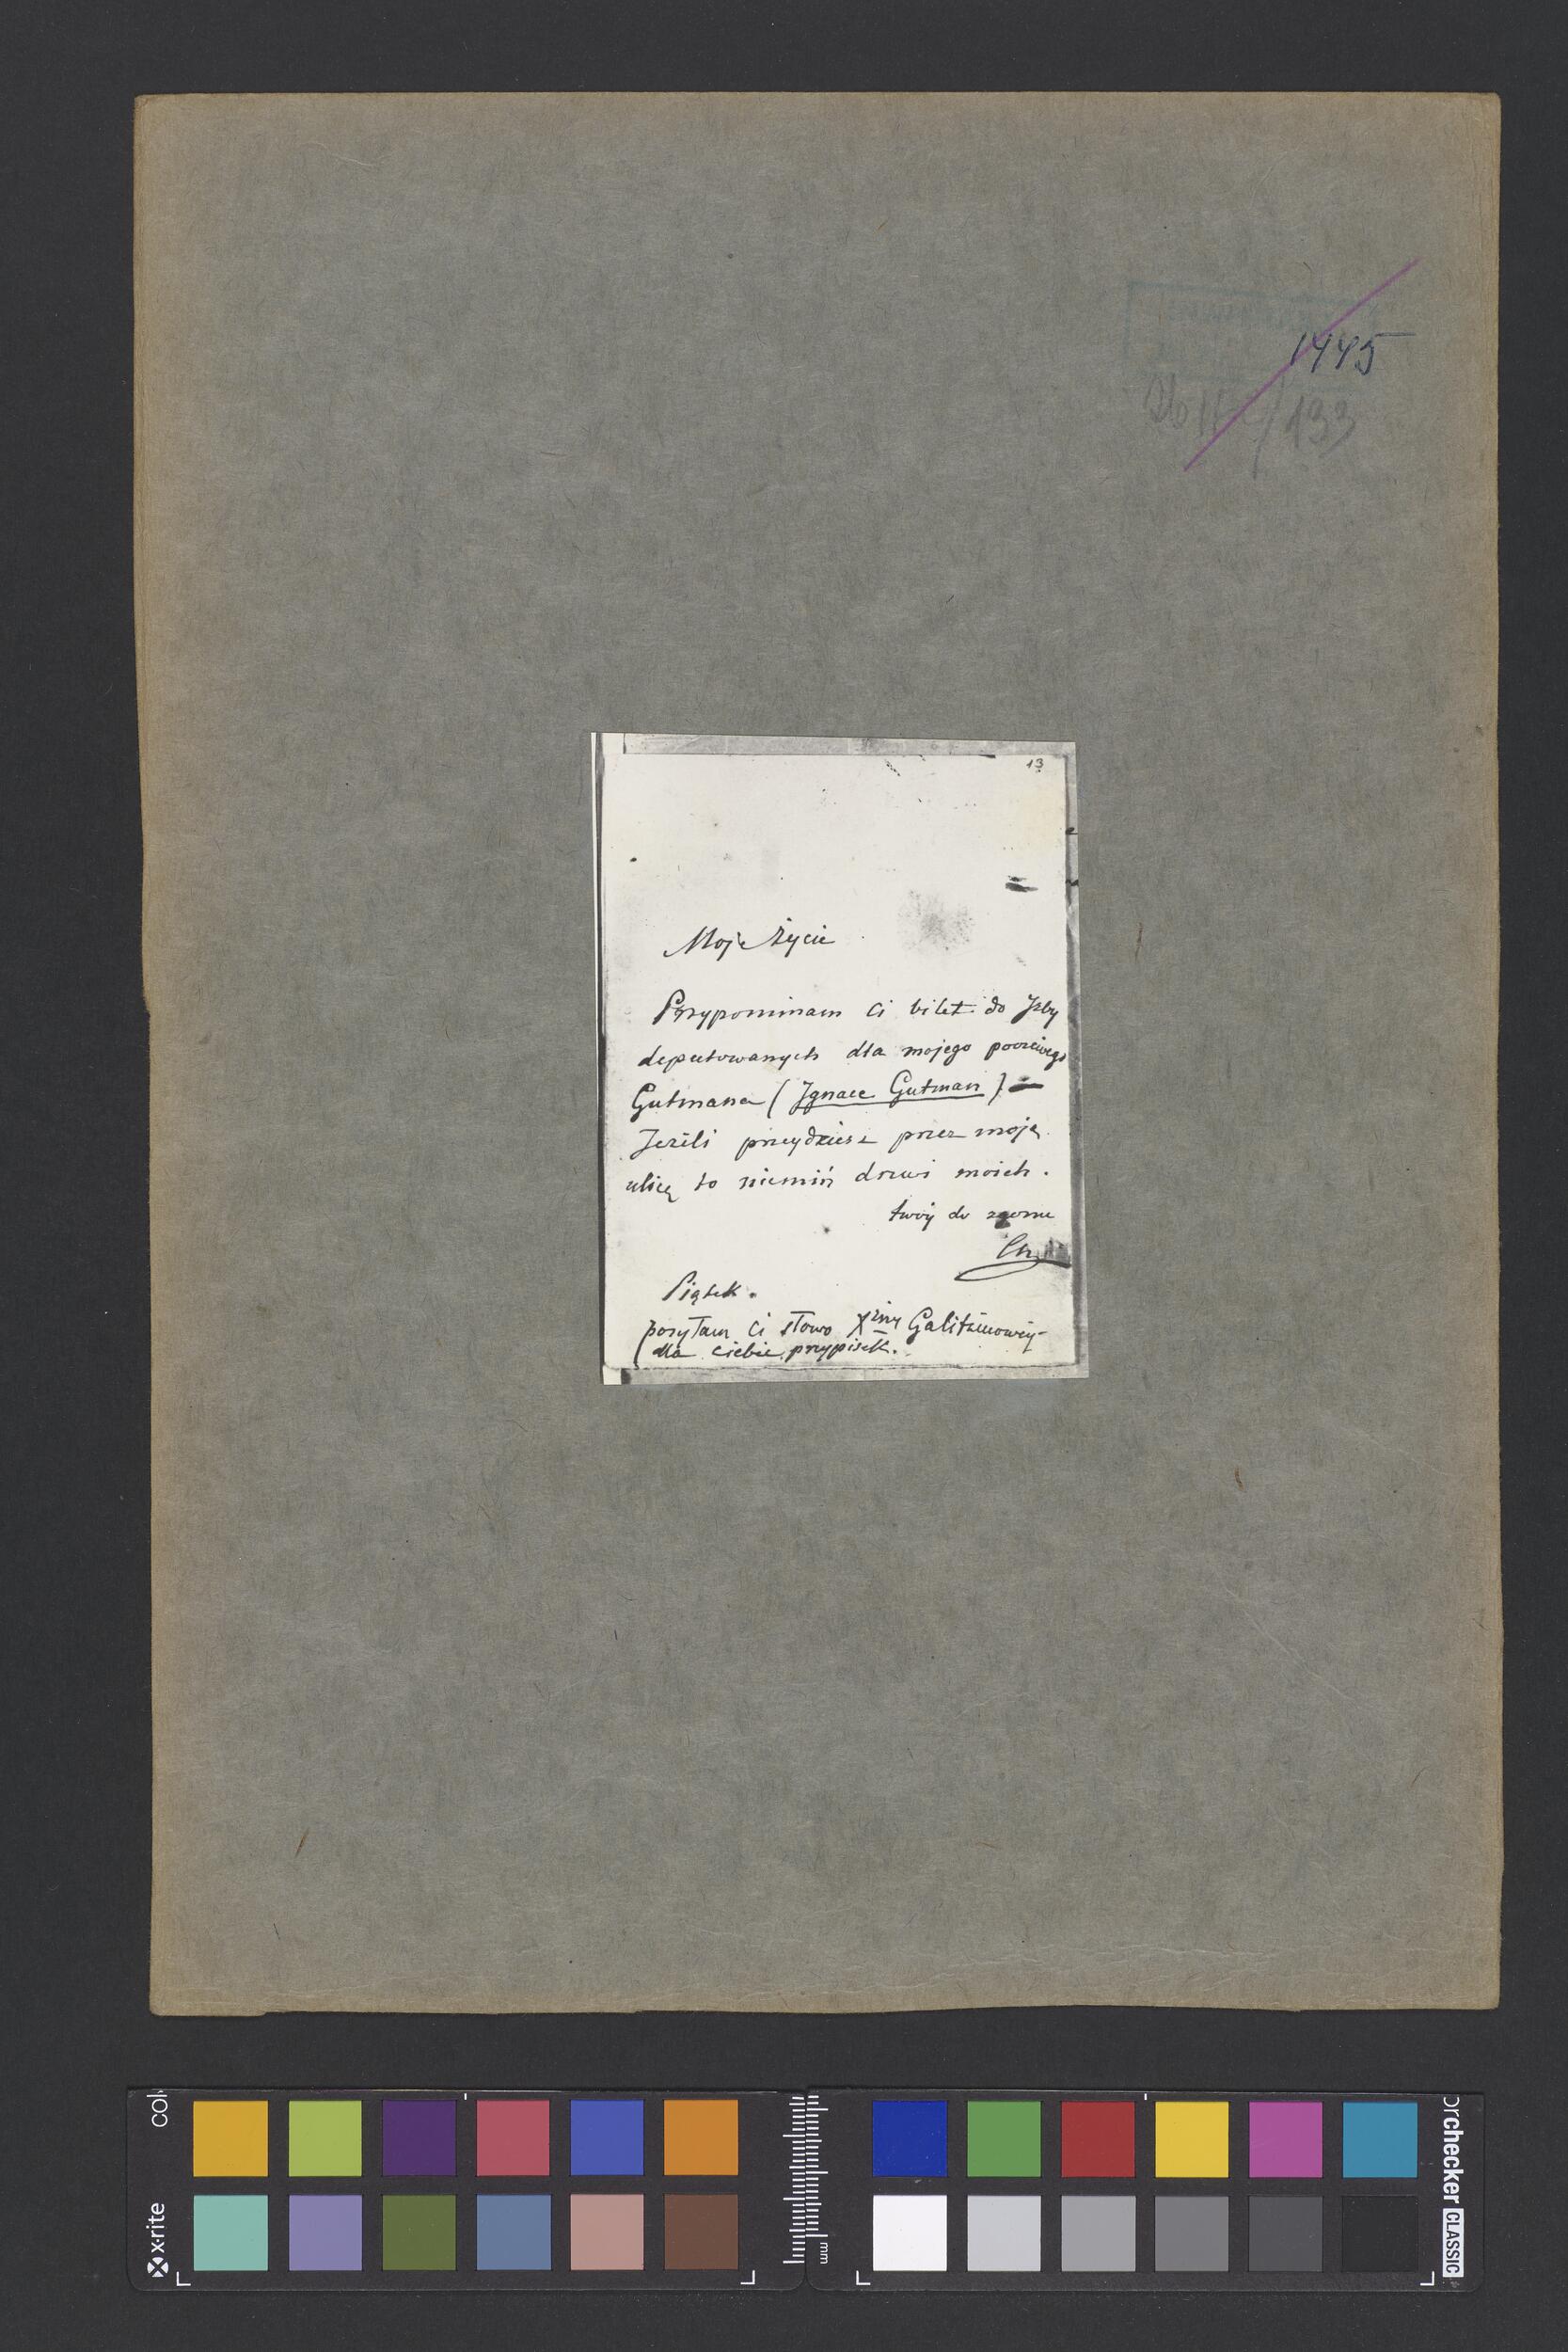 1445
133
13
Moje Życie
Przypominam Ci bilet do Izby
deputowanych dla mojego poczciwego
Gutmana (Ignace Gutman) —
Jeżeli przeydziesz przez moję
ulicę to niemiń drzwi moich.
twój do zgonu
Ch
Piątek.
posyłam Ci słowo Xżny Galitzinowéy
dla ciebie przypisek.
col
x·rite
mm
orchecker CLASSIC